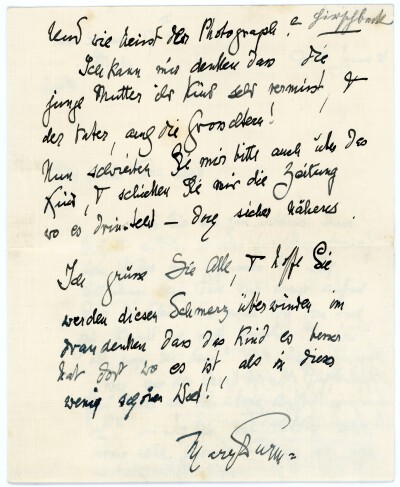 Und wie heisst der Photograph? Hirschbeck
Ich kann mir denken dass die
junge Mutter ihr Kind sehr vermisst, &
der Vater, auch die Grosseltern!
Nun schreiben Sie mir bitte auch über das
Kind, & schicken Sie mir die Zeitung
wo es drinsteht – doch sicher näheres.
Ich grüsse Sie Alle, & hoffe Sie
werden diesen Schmerz überwinden im
dran denken dass das Kind es besser
hat dort wo es ist als in dieser
wenig schönen Welt!